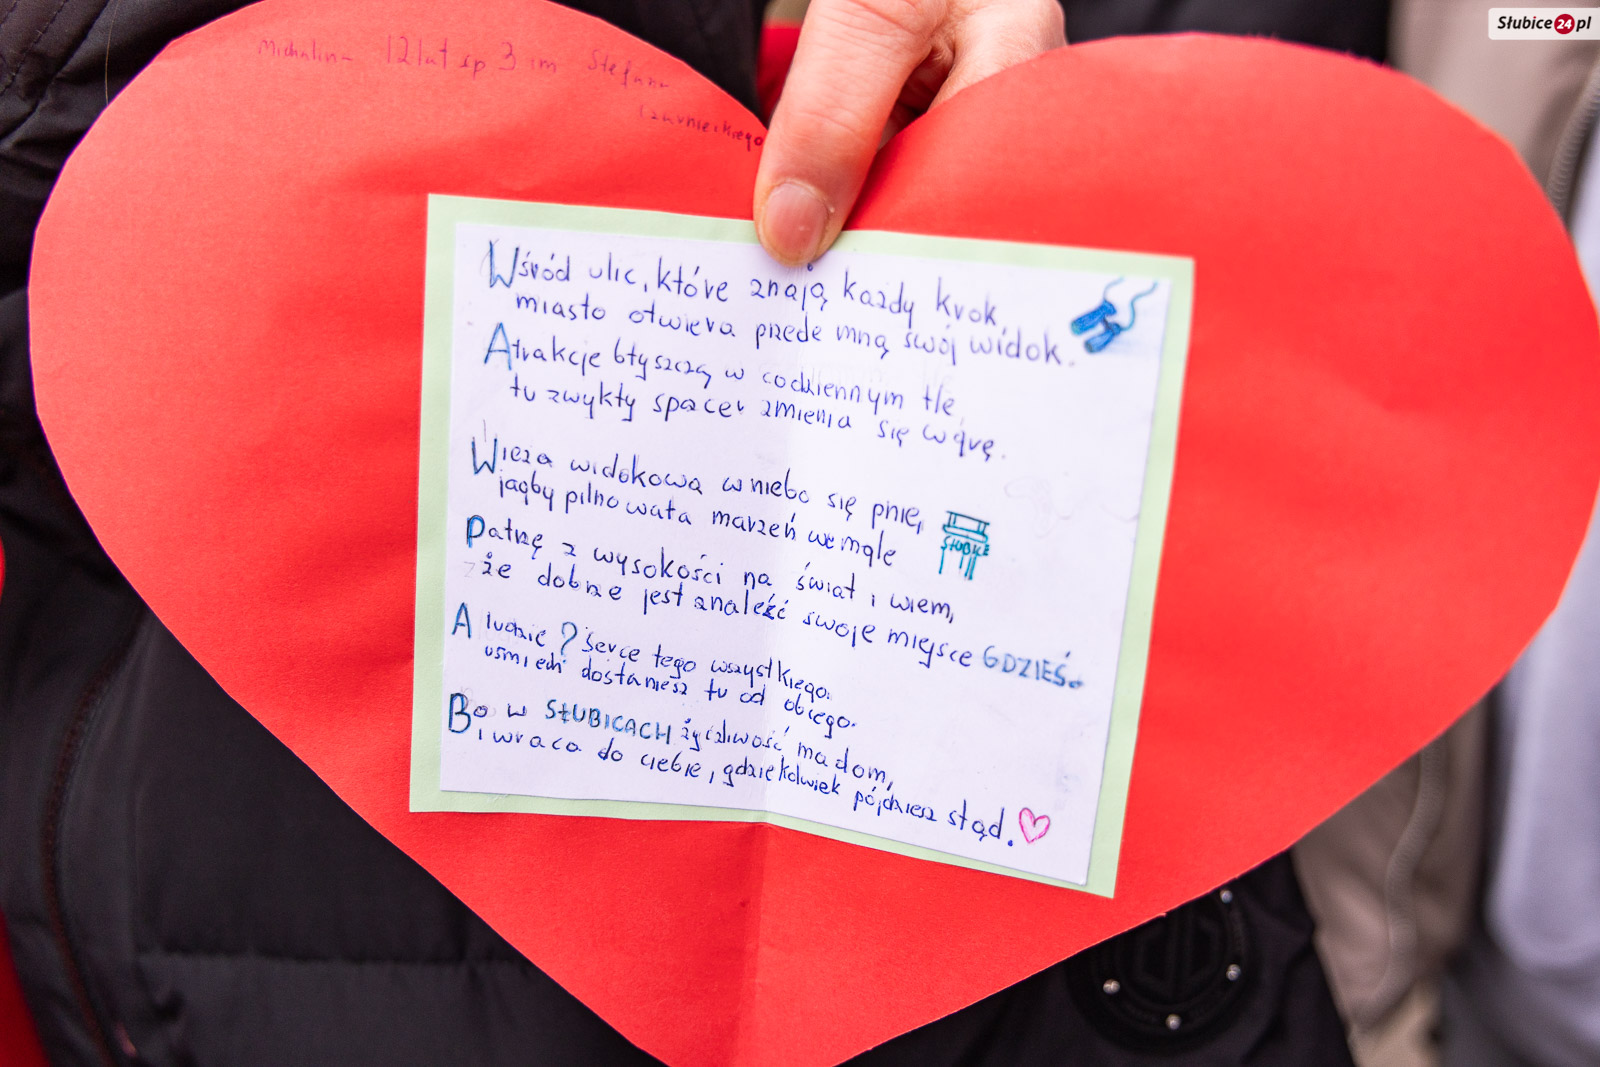 Słubice24.pl
Michalina 12 lat sp 3 im Stefana
Czarnieckiego
Wśród ulic, które znają każdy krok,
miasto otwiera przede mną swój widok.
Atrakcje błyszczą w codziennym tle,
tu zwykły spacer zmienia się w grę.
Wieża widokowa w niebo się pnie,
jagby pilnowała marzeń we mgle
SŁUBICE
Patrzę z wysokości na świat i wiem,
że dobrze jest znaleźć swoje miejsce GDZIEŚ.
A ludzie? Serce tego wszystkiego.
uśmiech dostaniesz tu od obcego.
Bo w SŁUBICACH życzliwość ma dom,
i wraca do ciebie, gdziekolwiek pójdziesz stąd.